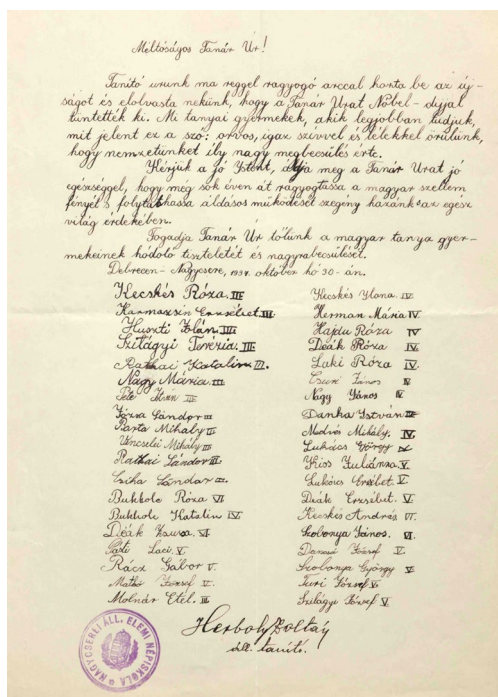 Méltóságos Tanár Úr!
Tanító urunk ma reggel ragyogó arccal hozta be az új-
ságot és elolvasta nekünk, hogy a Tanár Urat Nobel-díjjal
tüntették ki. Mi tanyai gyermekek, akik legjobban tudjuk,
mit jelent ez a szó: orvos, igaz szívvel és lélekkel örülünk,
hogy nemzetünket ily nagy megbecsülés érte.
Kérjük a jó Istent, áldja meg a Tanár Urat jó
egészséggel, hogy még sok éven át ragyogtassa a magyar szellem
fényét s folytathassa áldásos működését szegény hazánk s az egész
világ érdekében.
Fogadja Tanár Úr tőlünk a magyar tanya gyer-
mekeinek hódoló tiszteletét és nagyrabecsülését.
Debrecen - Nagycsere, 1937. október hó 30-án.
Kecskés Róza. III.
Karmazsin Erzsébet. III.
Huszti
Szilágyi Terézia. III.
Rathai Katalin III.
Nagy Mária. III.
Pete
Józsa Sándor III
Barta Mihály III
Vincellér Mihály III
Rathai Sándor III.
Csiha Sándor III.
Bukkole Róza VI
Bukkole Katalin IV.
Deák Zsuzsa. VI.
Laci. V.
Rácz Gábor V.
Mathé József V.
Molnár Etel. III
Kecskés Ilona. IV.
Herman Mária IV.
Hajdu Róza IV
Deák Róza IV.
Laki Róza IV.
János IV
Nagy János IV
Danka István
Medvés Mihály. IV.
Lukács György
Kiss Julánna V.
Lukács Erzsébet. V.
Deák Erzsébet. V.
Kecskés András VI.
Szobonya János. VI
József V.
Szobonya György V
Turi József V.
Szilágyi József V
Herboly Zoltán
áll. tanító.
NAGYCSEREI ÁLL. ELEMI NÉPISKOLA